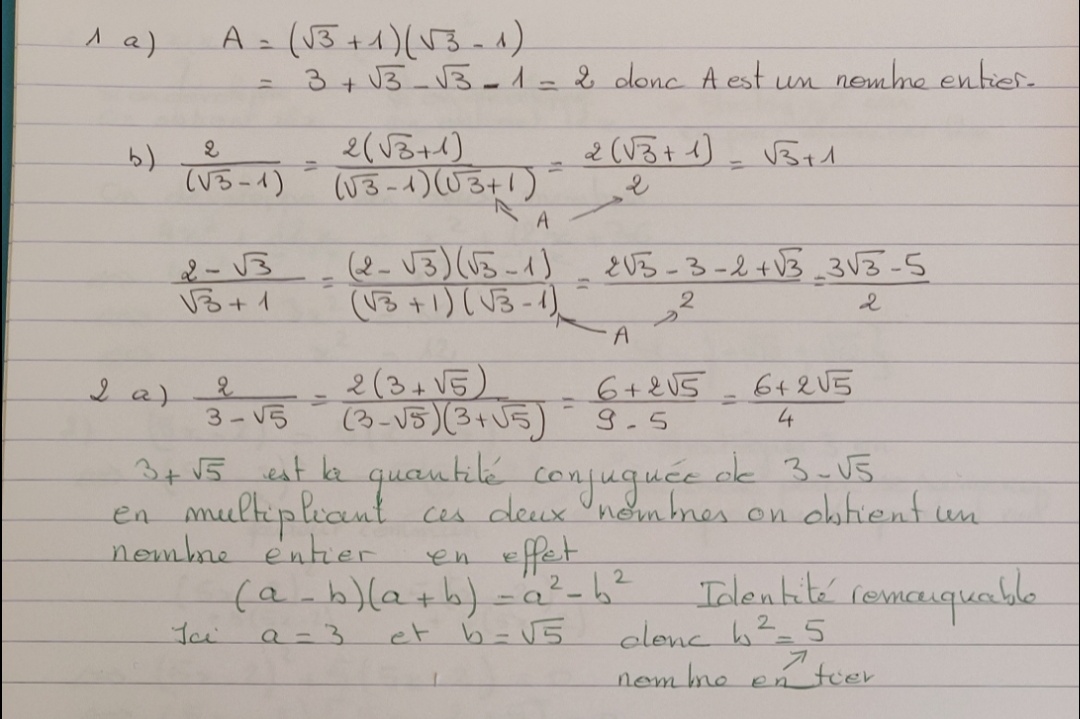 1 a) A = (√3 + 1)(√3 - 1)
= 3 + √3 - √3 - 1 = 2 donc A est un nombre entier.
b) 2/(√3 - 1) = 2(√3+1)/(√3 - 1)(√3+1) = 2(√3+1)/2 = √3+1
A
2 - √3/√3 + 1 = (2 - √3)(√3 - 1)/(√3 + 1)(√3 - 1) = 2√3 - 3 - 2 + √3/2 = 3√3 - 5/2
A
2 a) 2/3 - √5 = 2(3 + √5)/(3 - √5)(3 + √5) = 6 + 2√5/9 - 5 = 6 + 2√5/4
3 + √5 est la quantité conjuguée de 3 - √5
en multipliant ces deux nombres on obtient un
nombre entier en effet
(a - b)(a + b) = a² - b² Identité remarquable
Ici a = 3 et b = √5 donc b² = 5
nombre entier